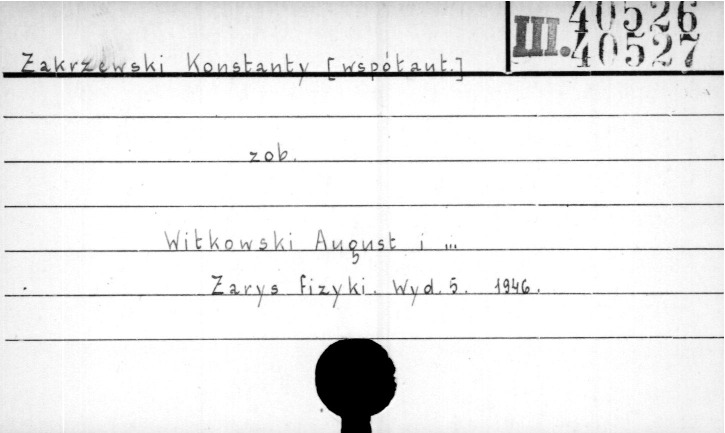 III. 40526
40527
Zakrzewski Konstanty [współaut.]
zob.
Witkowski August i ...
Zarys fizyki. Wyd. 5. 1946.